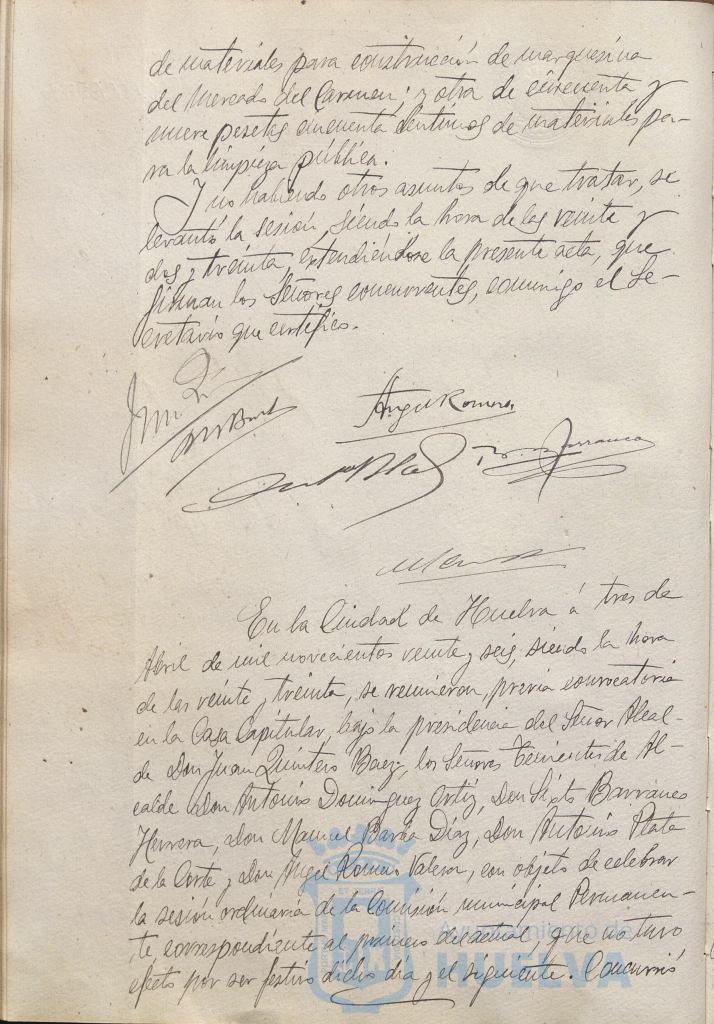 de materiales para construcción de marquesina
del Mercado del Carmen; y otra de cincuenta y
nueve pesetas cincuenta centimos de materiales pa-
ra la limpieza pública.
Y no habiendo otros asuntos de que tratar, se
levantó la sesión, siendo la hora de las veinte y
dos y treinta, extendiéndose la presente acta, que
firman los Señores concurrentes, conmigo el Se-
cretario que certifico.
Angel Romero
B. Barranco
En la Ciudad de Huelva á tres de
Abril de mil novecientos veinte y seis, siendo la hora
de las veinte y treinta, se reunieron, previa convocatoria
en la Casa Capitular, bajo la presidencia del Señor Alcal-
de Don Juan Quintero Baez, los Señores Tenientes de Al-
calde Don Antonio Dominguez Ortiz, Don Sixto Barranco
Herrera, Don Manuel Barba Díaz, Don Antonio Plata
de la Corte y Don Angel Romero Valera, con objeto de celebrar
la sesión ordinaria de la Comisión municipal Permanen-
te correspondiente al primero del actual, que no tuvo
efecto por ser festivo dicho día y el siguiente. Concurrió
Ayuntamiento de
HUELVA